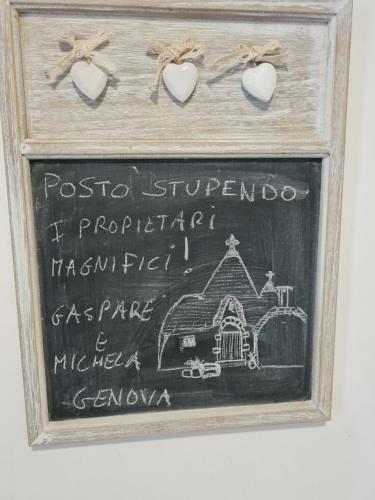 POSTO STUPENDO
I PROPIETARI
MAGNIFICI!
GASPARE
E
MICHELA
GENOVA